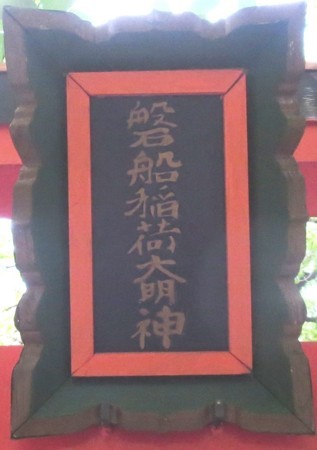 磐船稲荷大明神